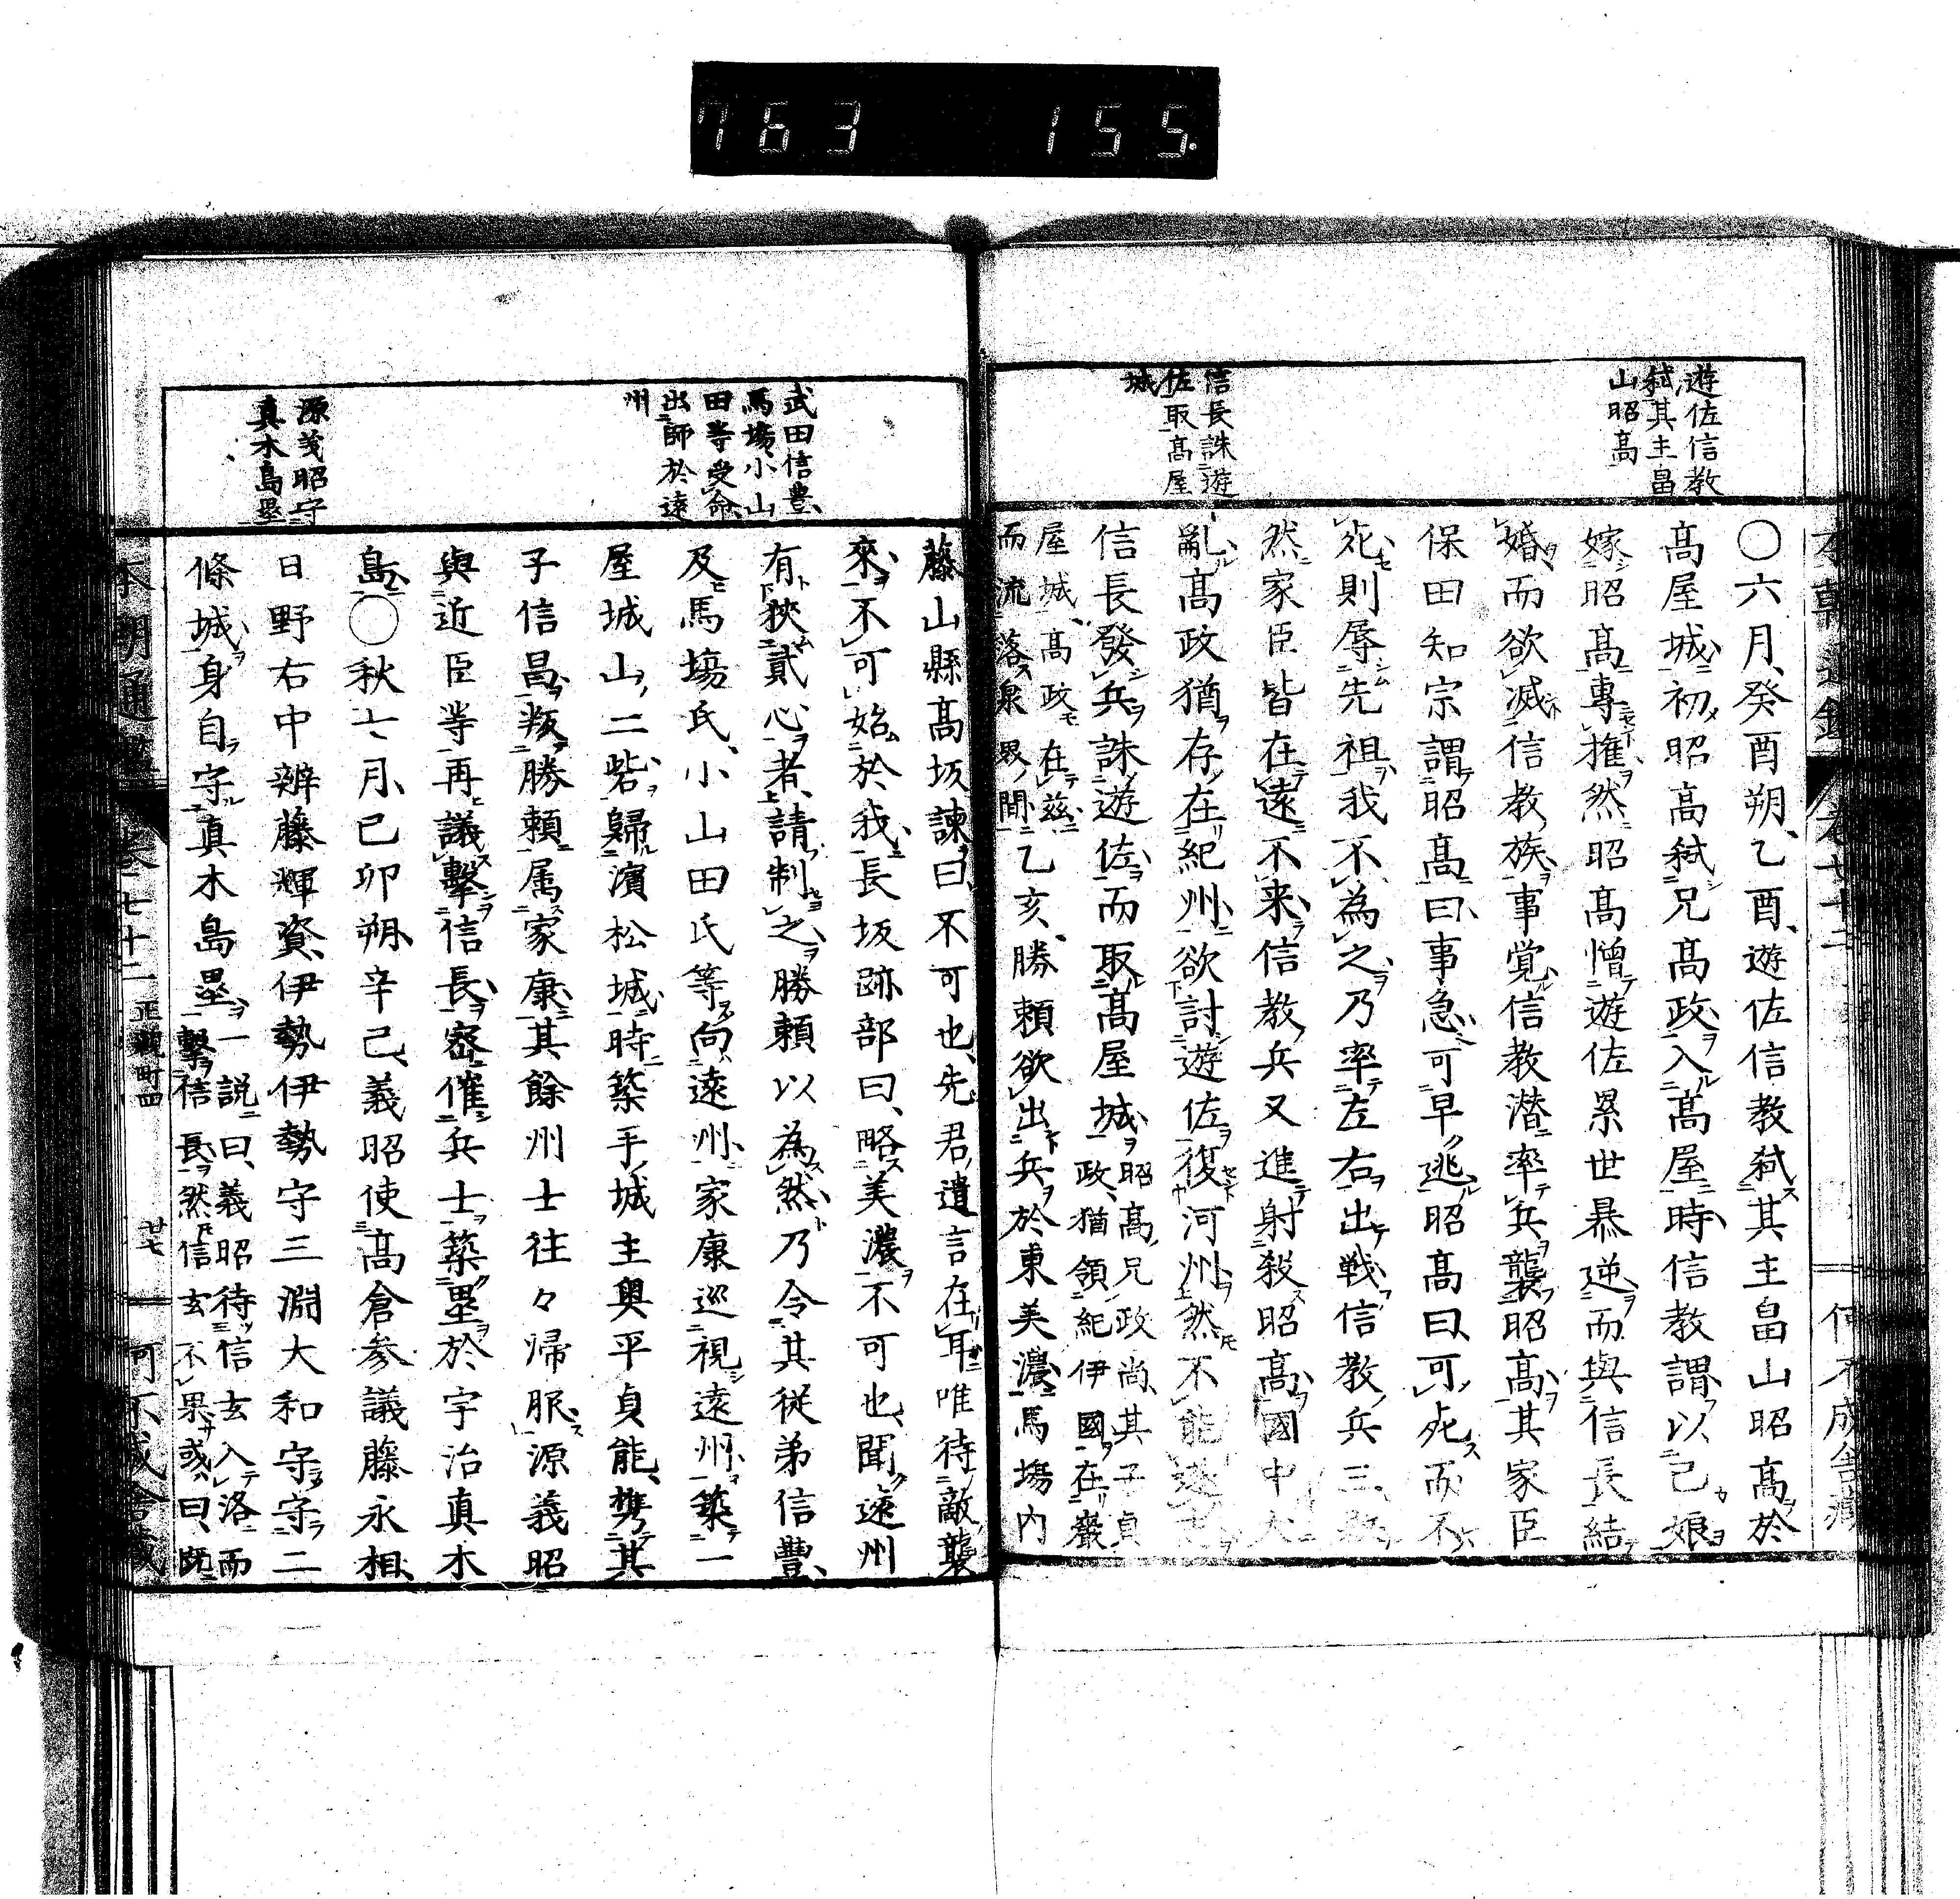 763 155.
遊佐信教
弑其主畠
山昭高
信長誅遊
佐取高屋
城
〇六月癸酉朔乙酉遊佐信教弑其主畠山昭高於
高屋城初昭高弑兄高政入高屋時信教謂以己娘
嫁昭高專権然昭高憎遊佐累世暴逆而與信長結
婚而欲滅信教族事覚信教潜率兵襲昭高其家臣
保田知宗謂昭高曰事急可早逃昭高曰可死而不
死則辱先祖我不為之乃率左右出戦信教兵三
然家臣皆在遠不来信教兵又進射殺昭高國中大
亂高政猶存在紀州欲討遊佐復河州然不能遂
信長發兵誅遊佐而取高屋城昭高兄政尚其子貞
政猶領紀伊國在巖
屋城高政在茲
而流落泉界間乙亥勝頼欲出兵於東美濃馬場内
武田信豊
馬場小山
田等受命
出師於遠
州
源義昭守
真木島塁
藤山縣高坂諫曰不可也先君遺言在耳唯待敵襲
來不可始於我長坂跡部曰略美濃不可也聞遠州
有狹貳心者請制之勝頼以為然乃令其従弟信豐
及馬場氏小山田氏等向遠州家康巡視遠州築一
屋城山二砦歸濱松城時築手城主奥平貞能携其
子信昌叛勝頼属家康其餘州士往々帰服源義昭
與近臣等再議撃信長密催兵士築塁於宇治真木
島〇秋七月己卯朔辛己義昭使高倉参議藤永相
日野右中辨藤輝資伊勢伊勢守三淵大和守守二
條城身自守真木島塁一説曰義昭待信玄入洛而
撃信長然信玄不果或曰既
本朝通鑑 巻七十二 正親町四 廿七 可不成舎蔵